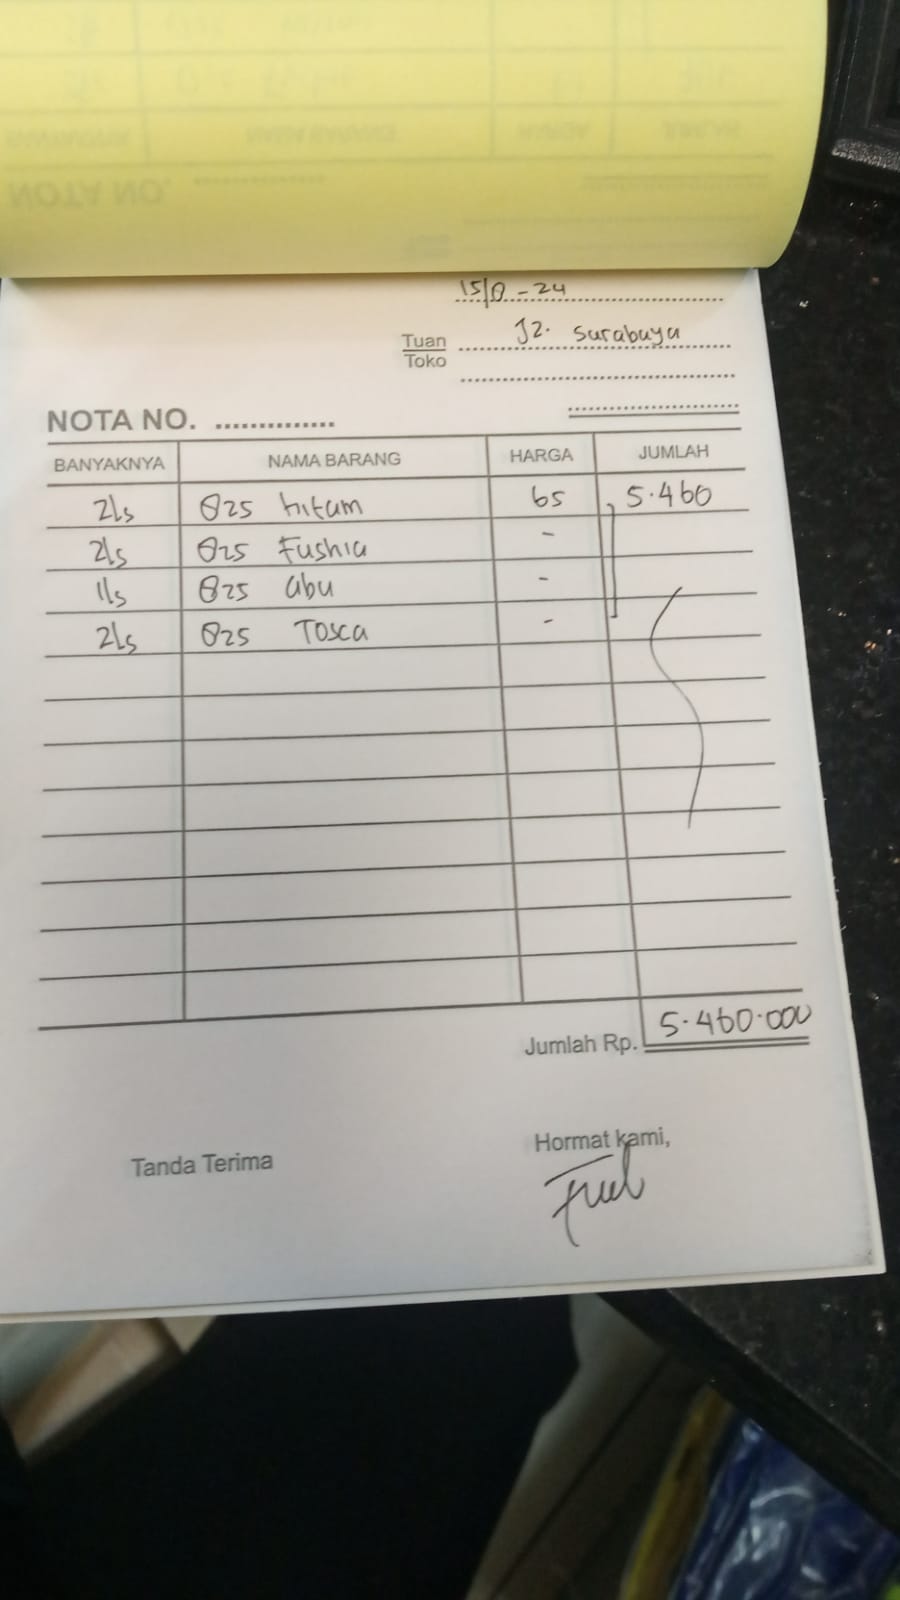 15/8-24
Tuan
Toko
J2. Surabaya
NOTA NO. ..............
BANYAKNYA NAMA BARANG HARGA JUMLAH
2Ls 025 hitam 65 5.460
2Ls 025 Fushia -
1Ls 025 abu -
2Ls 025 Tosca -
Jumlah Rp. 5.460.000
Tanda Terima Hormat kami,